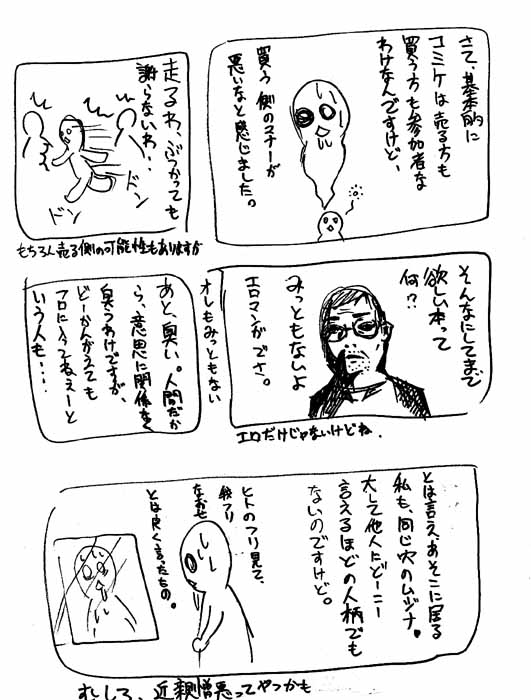 さて、基本的に
コミケは売る方も
買う方も参加者な
わけなんですけど、
買う側のマナーが
悪いなと感じました。
走るわ、ぶつかっても
謝らないわ・・
ドン
ドン
もちろん売る側の可能性もありますが
そんなにしてまで
欲しい本って
何!?
みっともないよ
エロマンガでさ。
オレもみっともない
エロだけじゃないけどね.
あと、臭い。人間だか
ら、意思に関係なく
臭うわけですが、
どーかんがえても
フロに入ってねぇーと
いう人も・・・・
とは言え、あそこに居る
私も、同じ穴のムジナ。
大して他人にどーこー
言えるほどの人柄でも
ないのですけど。
ヒトのフリ見て、
我フリ
なおせ
とは良く言ったもの。
むしろ、近親憎悪ってやつかも